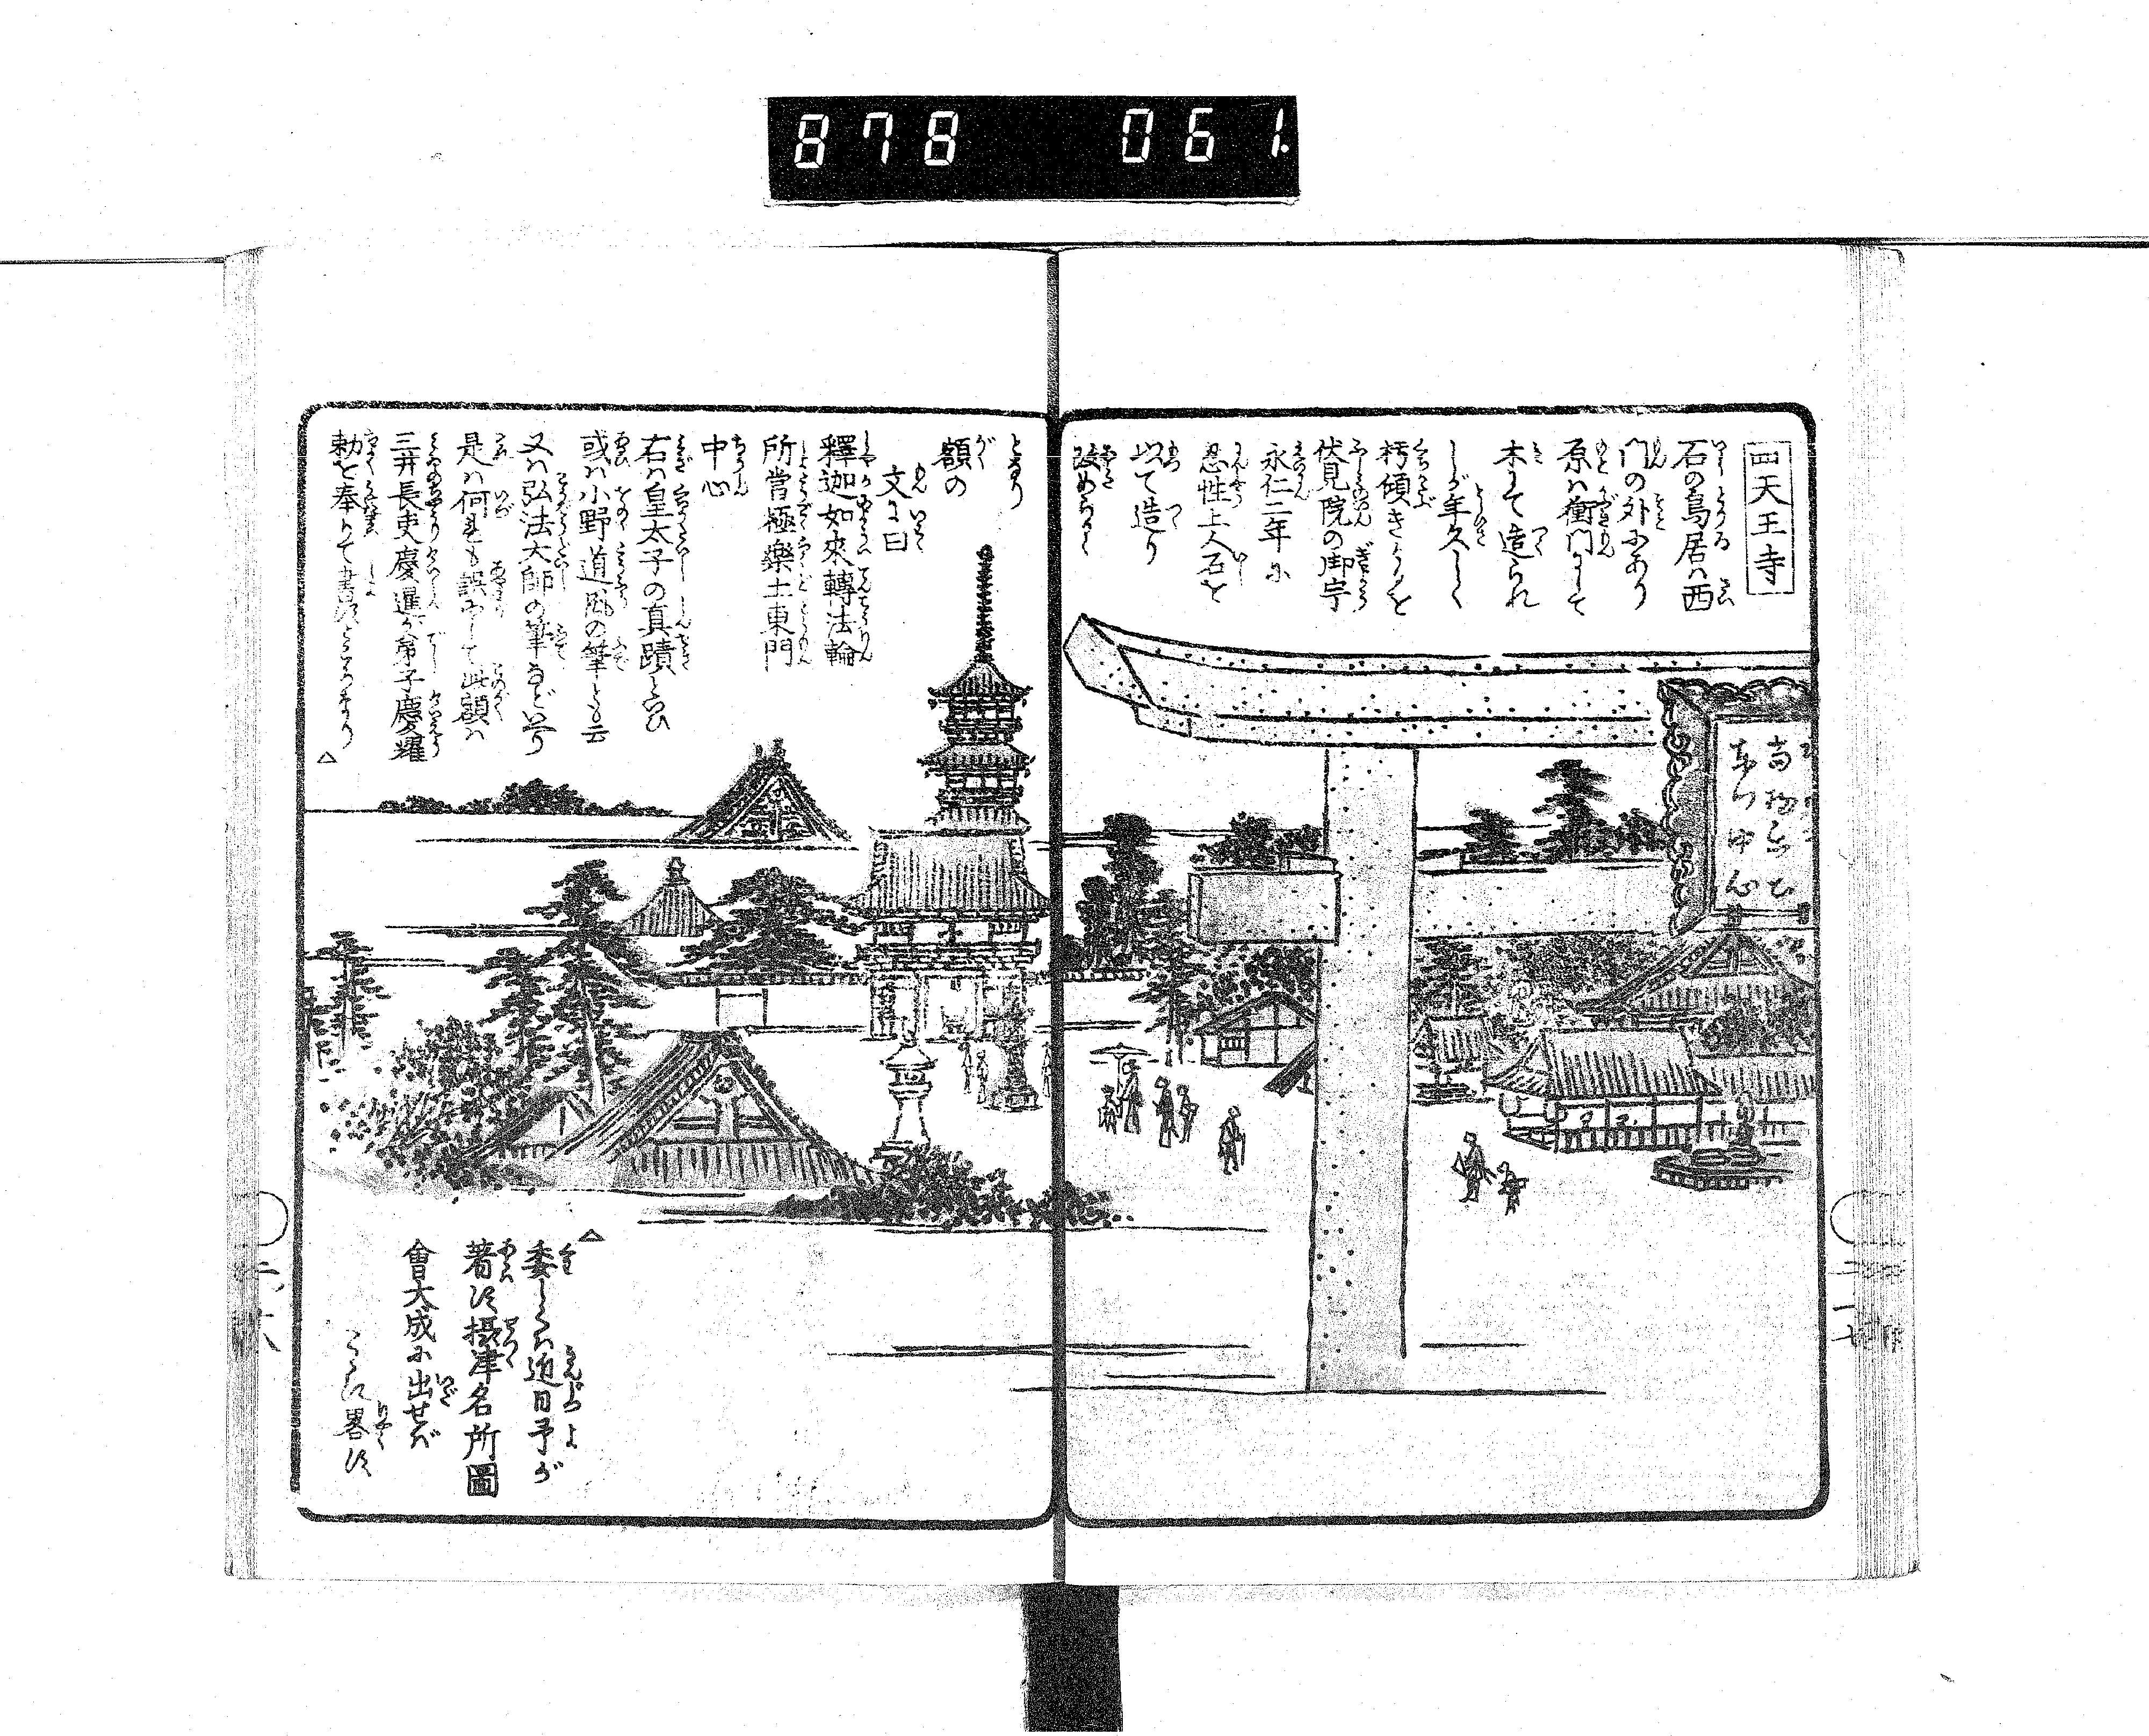 878 061.
四天王寺
石の鳥居ハ西
門の外にあり
原ハ衝門にして
木にて造られ
しが年久しく
朽傾きけるを
伏見院の御宇
永仁二年に
忍性上人石を
以て造り
改めらる
となり
額の
文に曰
釋迦如來轉法輪
所當極樂土東門
中心
右ハ皇太子の真蹟といひ
或ハ小野道風の筆とも云
又ハ弘法大師の筆などいへり
是ハ何れも誤にして此額ハ
三井長吏慶暹が弟子慶耀
勅を奉りて書す所なり
△
△
委しくハ近日予が
著す攝津名所圖
會大成に出せバ
こゝに畧す
當極樂土
東門中心